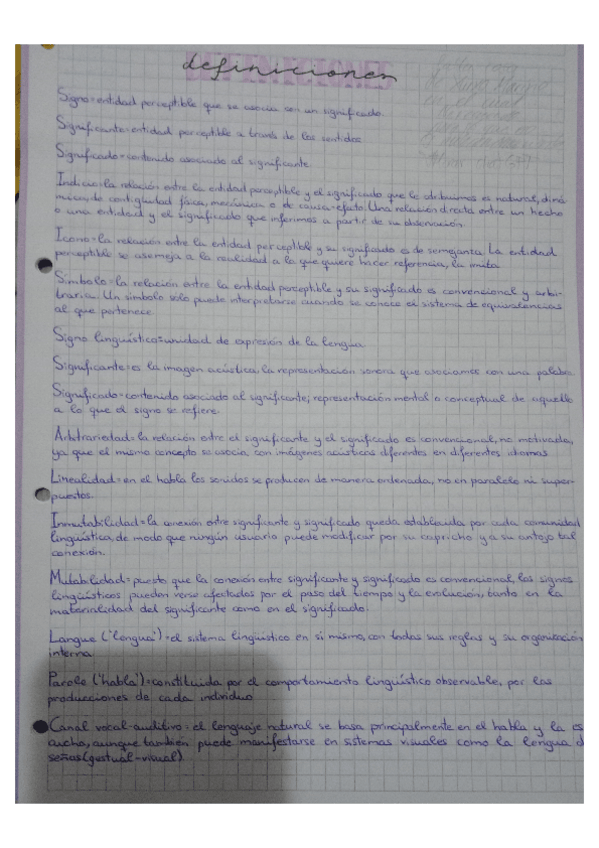 DEFINICIONES
definiciones
Signo=entidad perceptible que se asocia con un significado.
Significante=entidad perceptible a través de los sentidos
Significado=contenido asociado al significante
Indicio=la relación entre la entidad perceptible y el significado que le atribuimos es natural, diná
mica, de contigüidad física, mecánica o de causa-efecto. Una relación directa entre un hecho
o una entidad y el significado que inferimos a partir de su observación.
Icono=la relación entre la entidad perceptible y su significado es de semejanza. La entidad
perceptible se asemeja a la realidad a la que quiere hacer referencia, la imita.
Símbolo=la relación entre la entidad perceptible y su significado es convencional y arbi-
traria. Un símbolo solo puede interpretarse cuando se conoce el sistema de equivalencias
al que pertenece.
Signo lingüístico=unidad de expresión de la lengua
Significante=es la imagen acústica, la representación sonora que asociamos con una palabra.
Significado=contenido asociado al significante, representación mental o conceptual de aquello
a lo que el signo se refiere.
Arbitrariedad=la relación entre el significante y el significado es convencional, no motivada,
ya que el mismo concepto se asocia con imágenes acústicas diferentes en diferentes idiomas
Linealidad=en el habla los sonidos se producen de manera ordenada, no en paralelo ni super-
puestos.
Inmutabilidad=la conexión entre significante y significado queda establecida por cada comunidad
lingüística, de modo que ningún usuario puede modificar por su capricho y a su antojo tal
conexión.
Mutabilidad=puesto que la conexión entre significante y significado es convencional, los signos
lingüísticos pueden verse afectados por el paso del tiempo y la evolución, tanto en la
materialidad del significante como en el significado.
Langue ('lengua')=el sistema lingüístico en sí mismo, con todas sus reglas y su organización
interna.
Parole ('habla')=constituida por el comportamiento lingüístico observable, por las
producciones de cada individuo
Canal vocal-auditivo=el lenguaje natural se basa principalmente en el habla y la es
cucha, aunque también puede manifestarse en sistemas visuales como la lengua d
señas (gestual-visual).